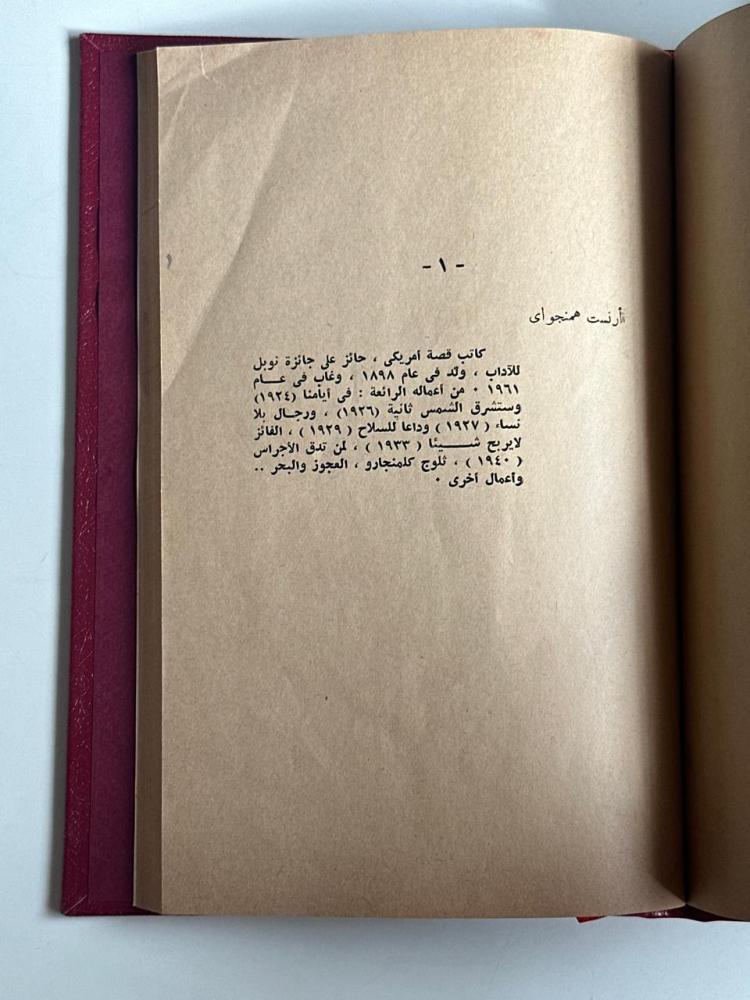 - ١ -
أرنست همنجواى
كاتب قصة أمريكى ، حائز على جائزة نوبل
للآداب ، ولد فى عام ١٨٩٨ ، وغاب فى عـــام
١٩٦١ ٠ من أعماله الرائعة : فى أيامنا (١٩٢٤)
وستشرق الشمس ثانية (١٩٢٦) ، ورجال بلا
نساء ( ١٩٢٧ ) وداعا للسلاح ( ١٩٢٩ ) ، الفائز
لايربح شـــــيئا ( ١٩٣٣ ) ، لمن تدق الأجراس
( ١٩٤٠ ) ، ثلوج كلمنجارو ، العجوز والبحر ..
وأعمال أخرى ٠